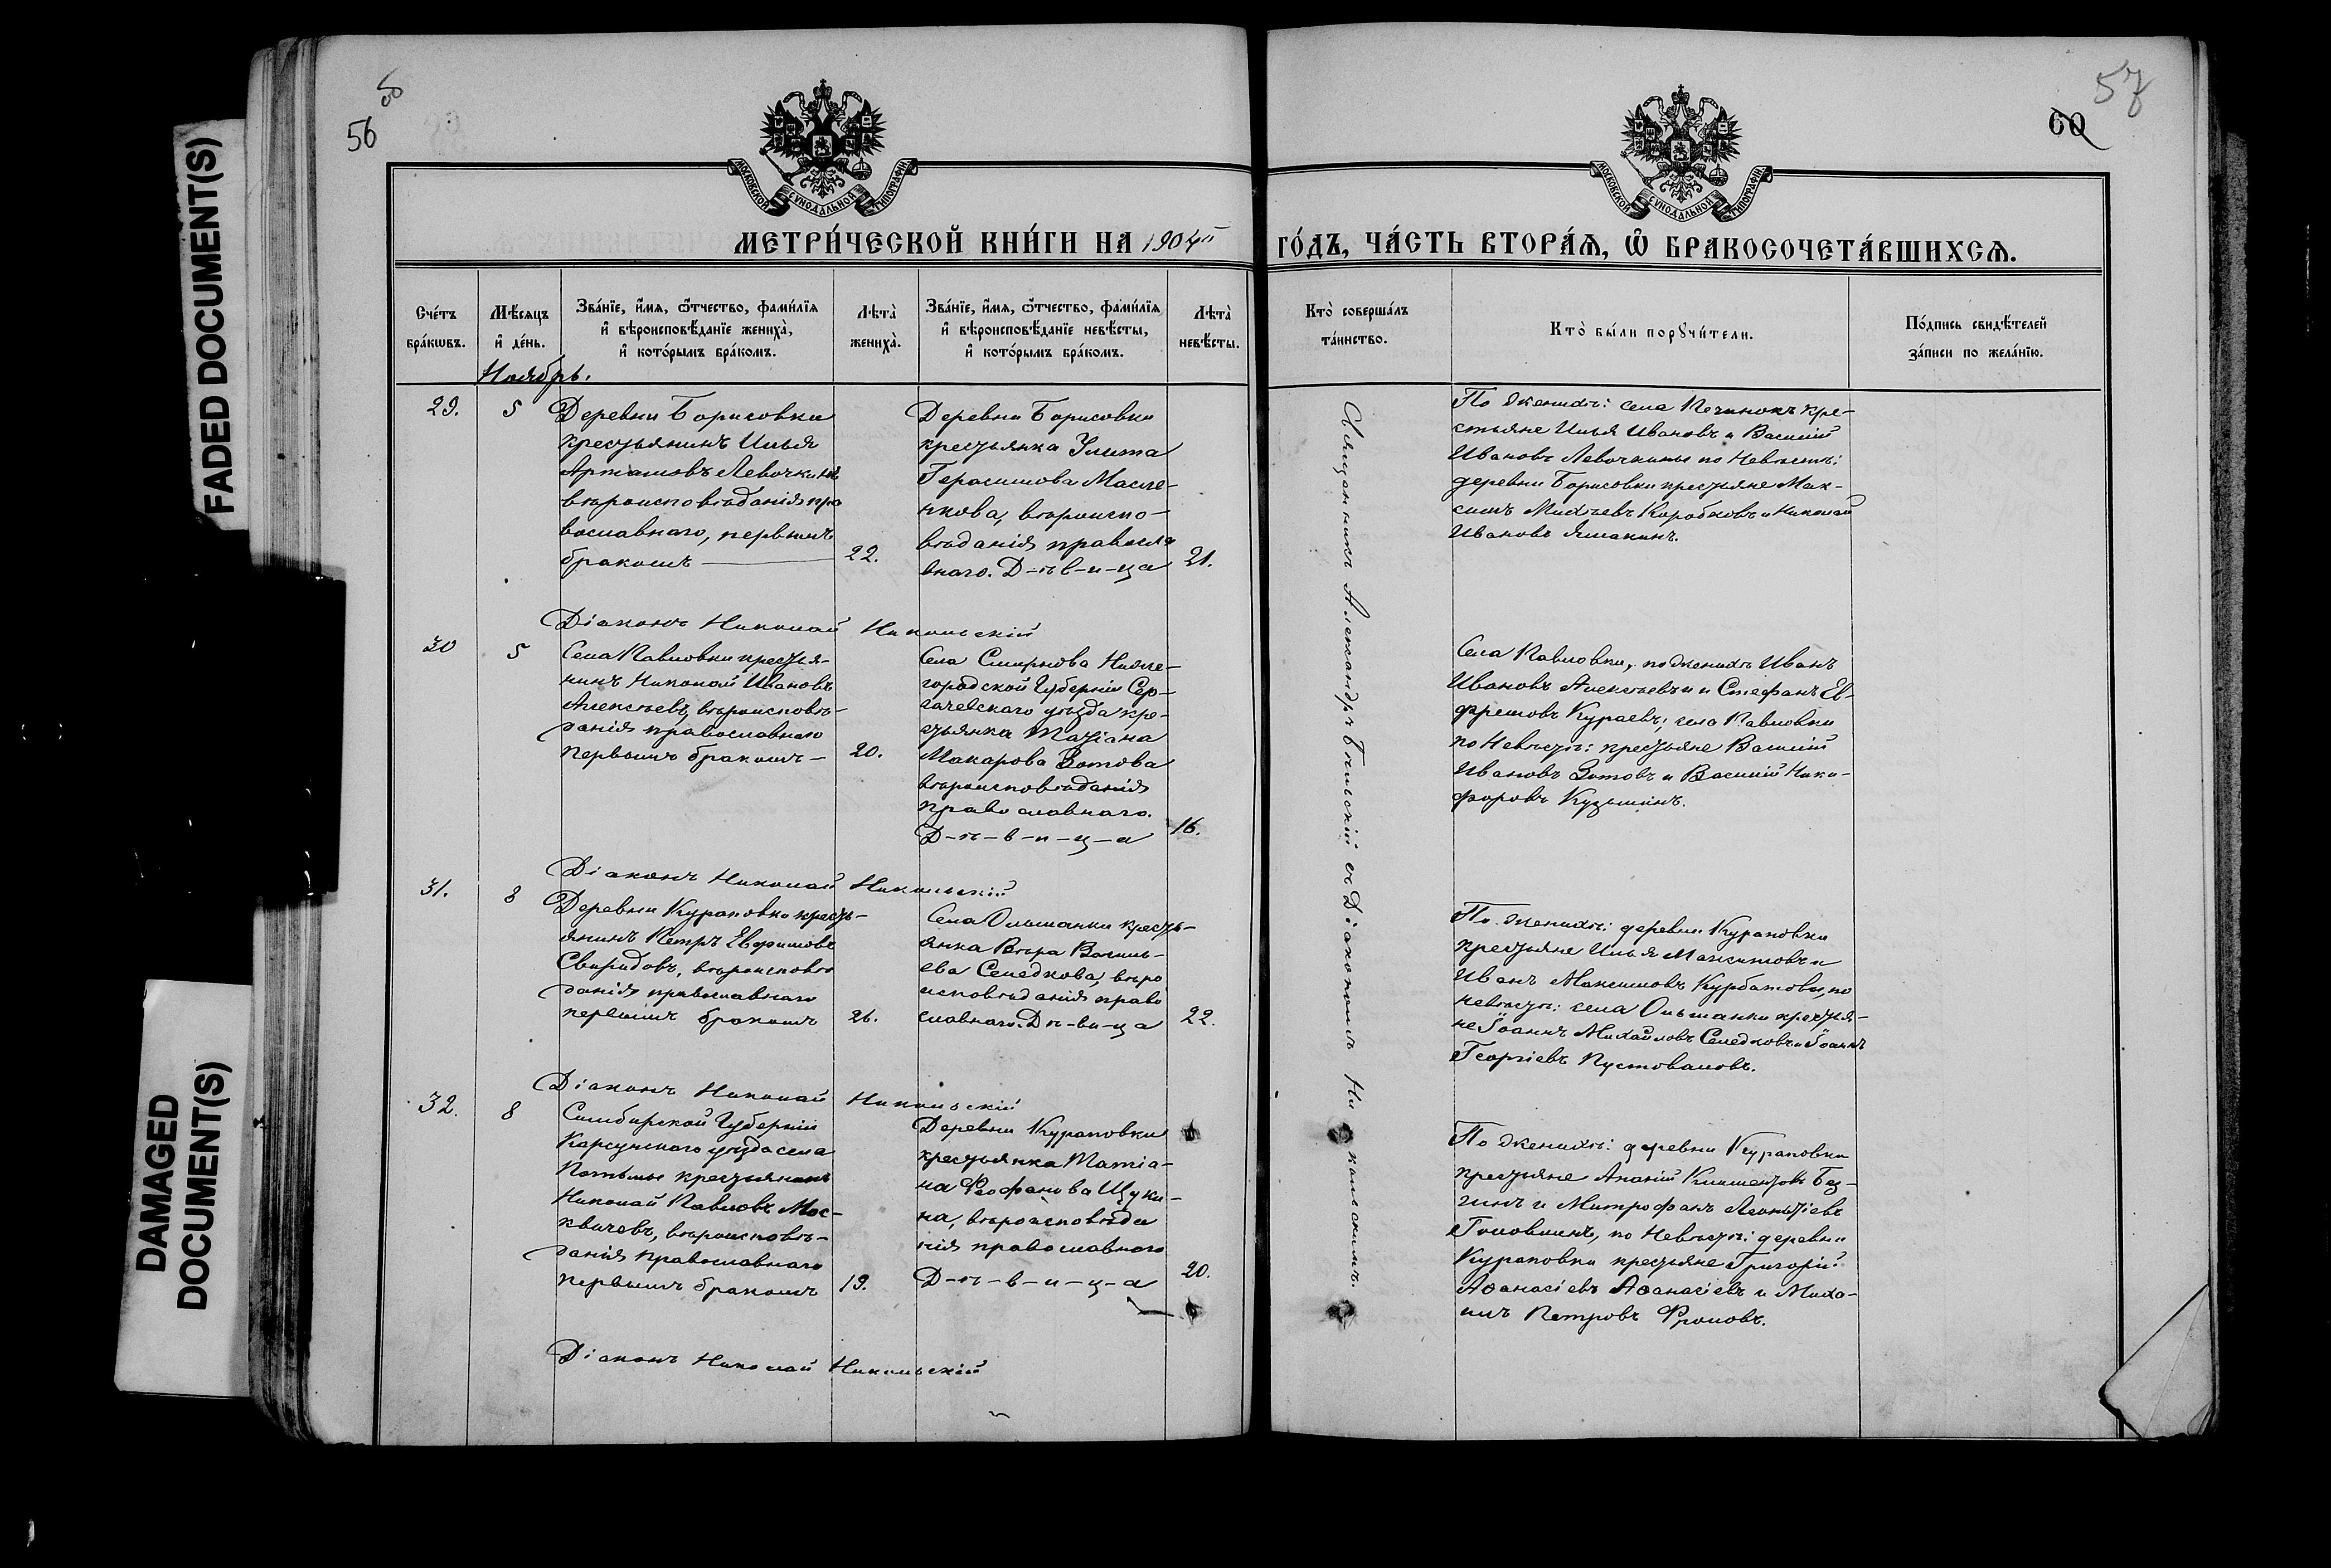 FADED DOCUMENT(S)
DAMAGED
DOCUMENT(S)
56
57
60
МОСКОВСКОЙ СУНОДАЛЬНОЙ ТИПОГРАФИИ
МОСКОВСКОЙ СУНОДАЛЬНОЙ ТИПОГРАФИИ
МЕТРИ́ЧЕСКОЙ КНИ́ГИ НА 1904й
ГО́ДЪ, ЧА́СТЬ ВТОРА́Ѧ, Ѽ БРАКОСОЧЕТА́ВШИХСѦ.
Сче́тъ
бра́кѡвъ.
Мѣ́сѧцъ
и҆ де́нь.
Зва́нїе, и҆́мѧ, ѻ҆́тчество, фами́лїѧ
и҆ вѣроисповѣ́данїе женихà,
и҆ кото́рымъ бра́комъ.
Лѣтà
женихà.
Зва́нїе, и҆́мѧ, ѻ҆́тчество, фами́лїѧ
и҆ вѣроисповѣ́данїе невѣ́сты,
и҆ кото́рымъ бра́комъ.
Лѣтà
невѣ́сты.
Ктò соверша́лъ
та́инство.
Ктò бы́ли порꙋчи́тели.
По́дпись свидѣ́телей
за́писи по жела́нїю.
Ноябрь.
29.
5
Деревни Борисовки
крестьянинъ Илья
Левочкинъ
вѣроисповѣданія пра
вославнаго, первымъ
бракомъ
22.
Деревни Борисовки
крестьянка Улита
Герасимова Масле-
нкова, вѣроиспо-
вѣданія правосла
внаго. Д-ѣв-и-ца
21.
По женихѣ: села Починокъ кре-
стьяне Илья Ивановъ и Василій
Ивановъ Левочкины по Невѣстѣ:
деревни Борисовки крестьяне Мак-
симъ Михѣевъ Коробковъ и Николай
Ивановъ Ямакинъ.
Діаконъ Николай Никольскій
30
5
Села Павловки крестья-
нинъ Николай Ивановъ
Алексѣевъ, вѣроисповѣ-
данія православнаго
первымъ бракомъ —
20.
Села Смирнова Ниже-
городской Губерніи Сер-
гачевскаго уѣзда кре-
стьянка Татіана
Макарова Зотова
вѣроисповѣданія
православнаго.
Д-ѣ-в-и-ц-а
16.
Села Павловки, по женихѣ Иванъ
Ивановъ Алексѣевъ и Стефанъ Ев-
фремовъ Кураевъ; села Павловки
по Невѣстѣ: крестьяне Василій
Ивановъ Зотовъ и Василій Ники-
форовъ Кузьминъ.
Діаконъ Николай Никольскій
31.
8
Деревни Кураповки кресть-
янинъ Петръ Евфимовъ
Свиридовъ, вѣроисповѣ
данія православнаго
первымъ бракомъ
26.
Села Ольшанки кресть-
янка Вѣра Василь-
ева Селедкова, вѣро
исповѣданія право
славнаго. Дѣ-ви-ца
22.
По женихѣ: деревни Кураповки
крестьяне Илья и
Иванъ Максимовъ Курбатовы, по
невѣстѣ: села Ольшанки крестья-
не Іоаннъ Михайловъ Селедковъ и Іоаннъ
Георгіевъ Пустоваловъ.
Діаконъ Николай Никольскій
32.
8
Симбирской Губерніи
Карсунскаго уѣзда села
Потьмы крестьянинъ
Николай Павловъ Мос-
квичевъ, вѣроисповѣ-
данія православнаго
первымъ бракомъ
19.
Деревни Кураповки
крестьянка Татіа-
на Феофанова Щуки-
на, вѣроисповѣда
нія православнаго
Д-ѣ-в-и-ц-а
20.
По женихѣ: деревни Кураповки
крестьяне Ананій Климентовъ Без-
гинъ и Митрофанъ Леонтіевъ
Головлинъ, по Невѣстѣ: деревни
Кураповки крестьяне Григорій
Аѳанасіевъ Аѳанасіевъ и Миха-
илъ Петровъ Фроловъ.
Діаконъ Николай Никольскій
Священникъ Александръ Бѣльскій съ Діакономъ Никольскимъ.